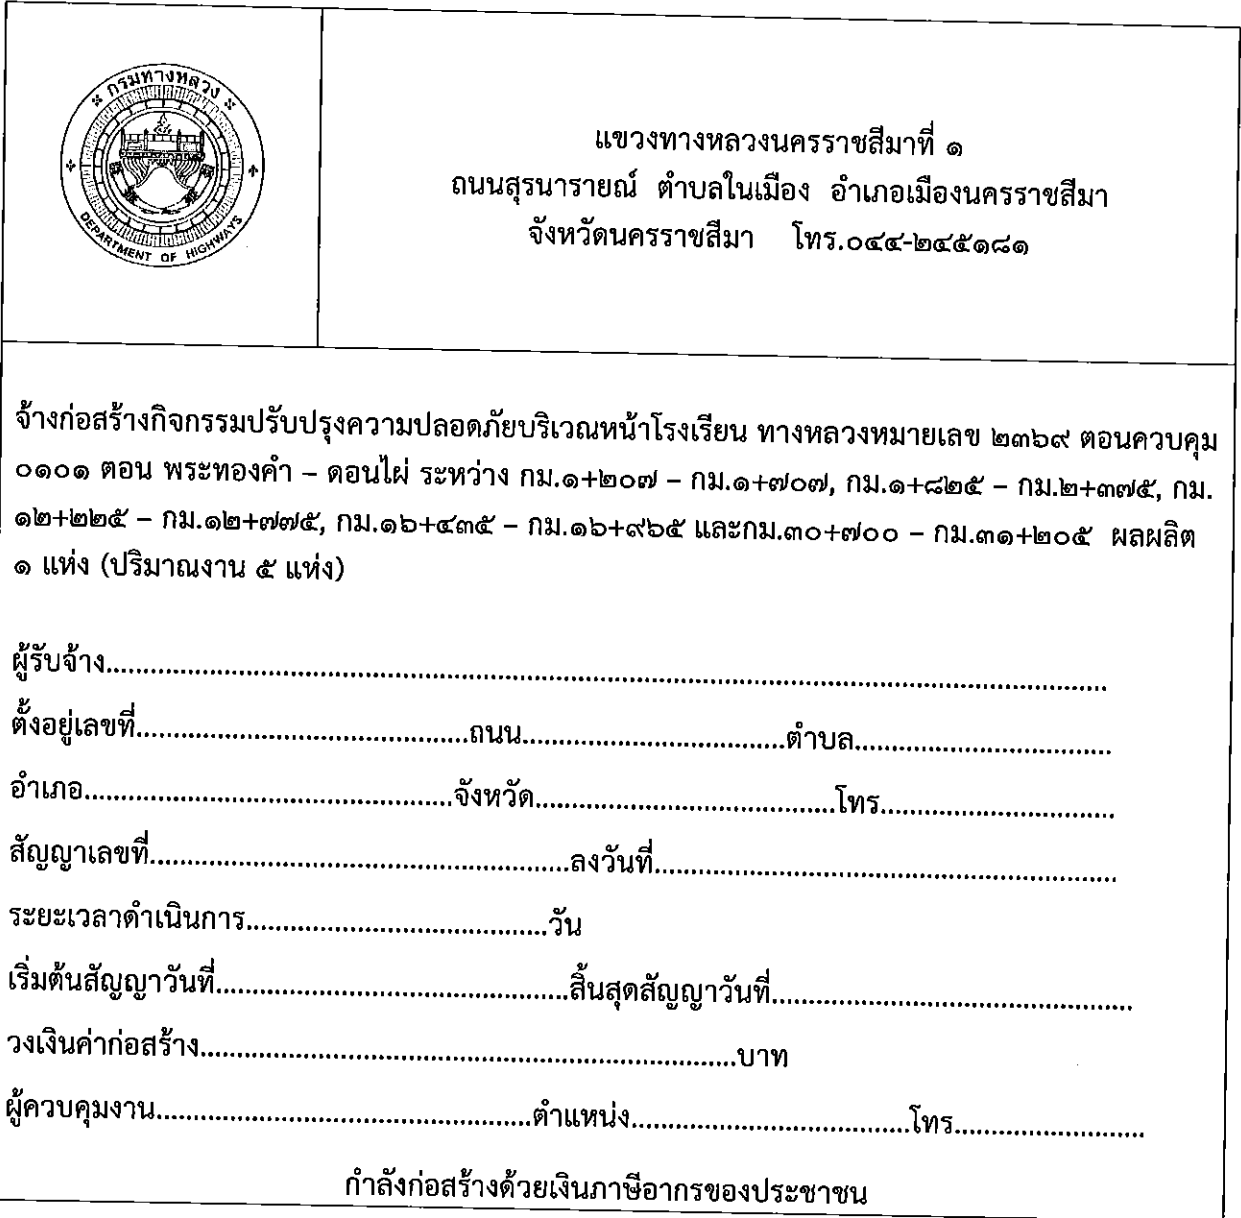 กรมทางหลวง
DEPARTMENT OF HIGHWAYS
แขวงทางหลวงนครราชสีมาที่ ๑
ถนนสุรนารายณ์ ตำบลในเมือง อำเภอเมืองนครราชสีมา
จังหวัดนครราชสีมา โทร.๐๔๔-๒๔๕๑๘๑
จ้างก่อสร้างกิจกรรมปรับปรุงความปลอดภัยบริเวณหน้าโรงเรียน ทางหลวงหมายเลข ๒๓๖๙ ตอนควบคุม
๐๑๐๑ ตอน พระทองคำ – ดอนไผ่ ระหว่าง กม.๑+๒๐๗ – กม.๑+๗๐๗, กม.๑+๘๒๕ – กม.๒+๓๗๕, กม.
๑๒+๒๒๕ – กม.๑๒+๗๗๕, กม.๑๖+๔๓๕ – กม.๑๖+๙๖๕ และกม.๓๐+๗๐๐ – กม.๓๑+๒๐๕ ผลผลิต
๑ แห่ง (ปริมาณงาน ๕ แห่ง)
ผู้รับจ้าง..........................................................................................................................
ตั้งอยู่เลขที่............................................ถนน...................................ตำบล..................................
อำเภอ.................................................จังหวัด........................................โทร...............................
สัญญาเลขที่........................................................ลงวันที่.............................................................
ระยะเวลาดำเนินการ........................................วัน
เริ่มต้นสัญญาวันที่...............................................สิ้นสุดสัญญาวันที่................................................
วงเงินค่าก่อสร้าง.......................................................................บาท
ผู้ควบคุมงาน..................................................ตำแหน่ง.....................................โทร.........................
กำลังก่อสร้างด้วยเงินภาษีอากรของประชาชน